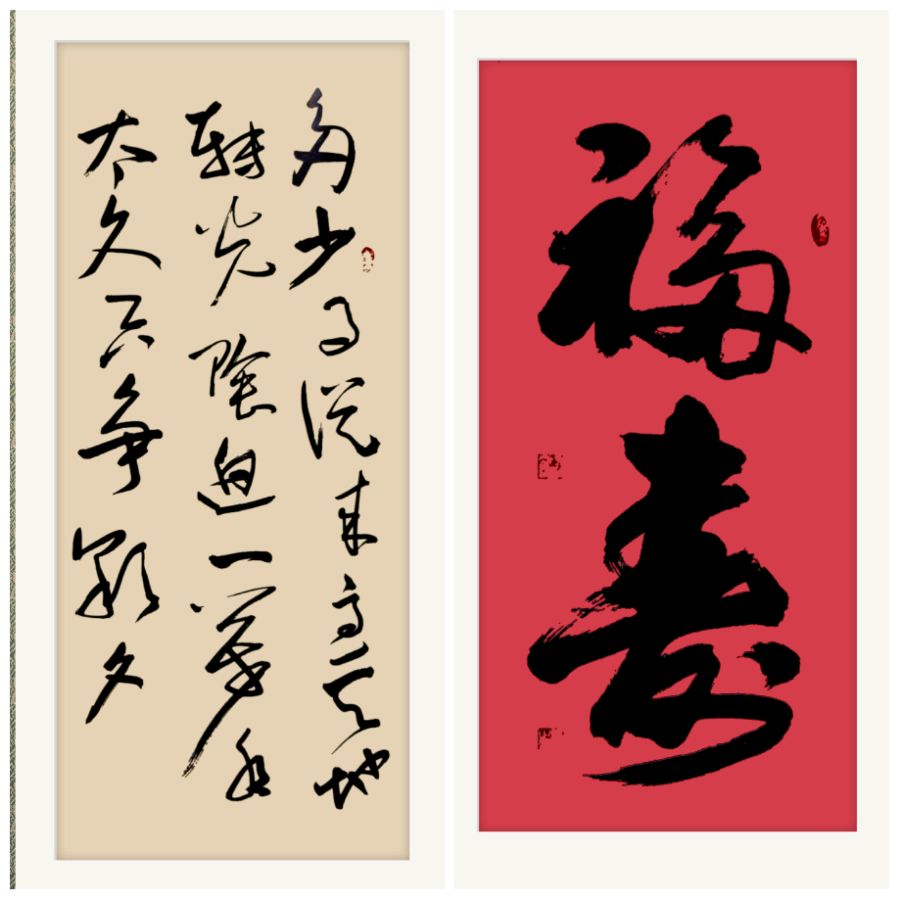 多少事從来急天地
轉光陰迫一萬年
太久只争朝夕
福
寿